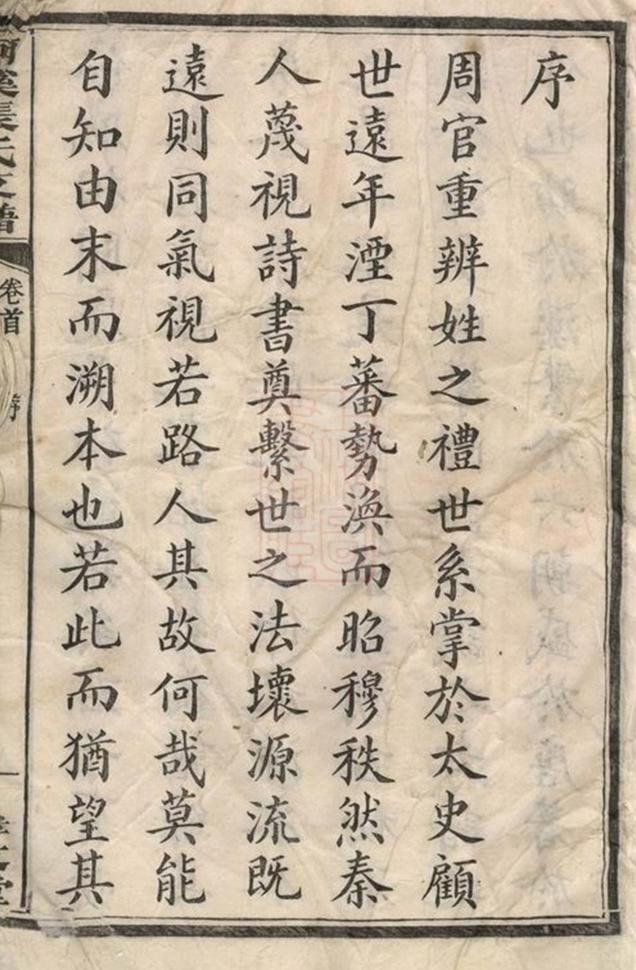 序
周官重辨姓之禮世系掌於太史顧
世遠年湮丁蕃勢渙而昭穆秩然秦
人蔑視詩書奠繫世之法壞源流既
遠則同氣視若路人其故何哉莫能
自知由末而溯本也若此而猶望其
張氏支譜
卷首
序
堂